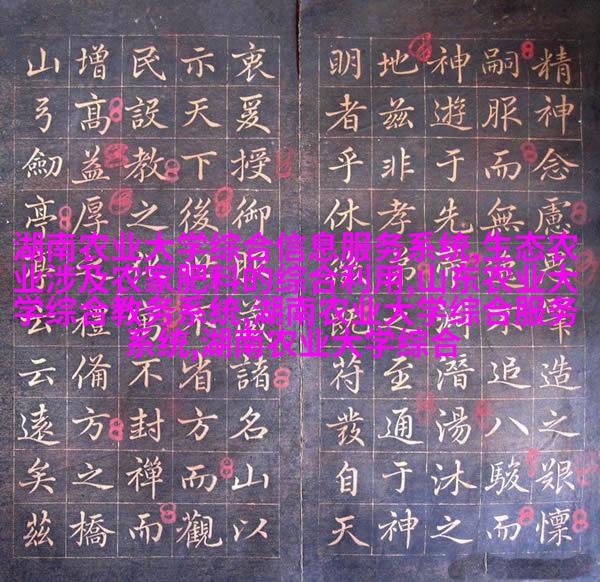 湖南农业大学综合信息服务系统,生态农
业涉及农家肥料的综合利用,山东农业大
学综合教务系统,湖南农业大学综合服务
系统,湖南农业大学综合
精神念慮造之艱懍
嗣服而無追八駿而
神遊于先潛湯沐之
地茲非孝之至通于神
明者乎休符發自天
衷爰授御諸名山以
示天下後省方而觀
民設教之不封禪而
增髙益厚禮備方之橋
山弓劒亭亭云云遠矣茲